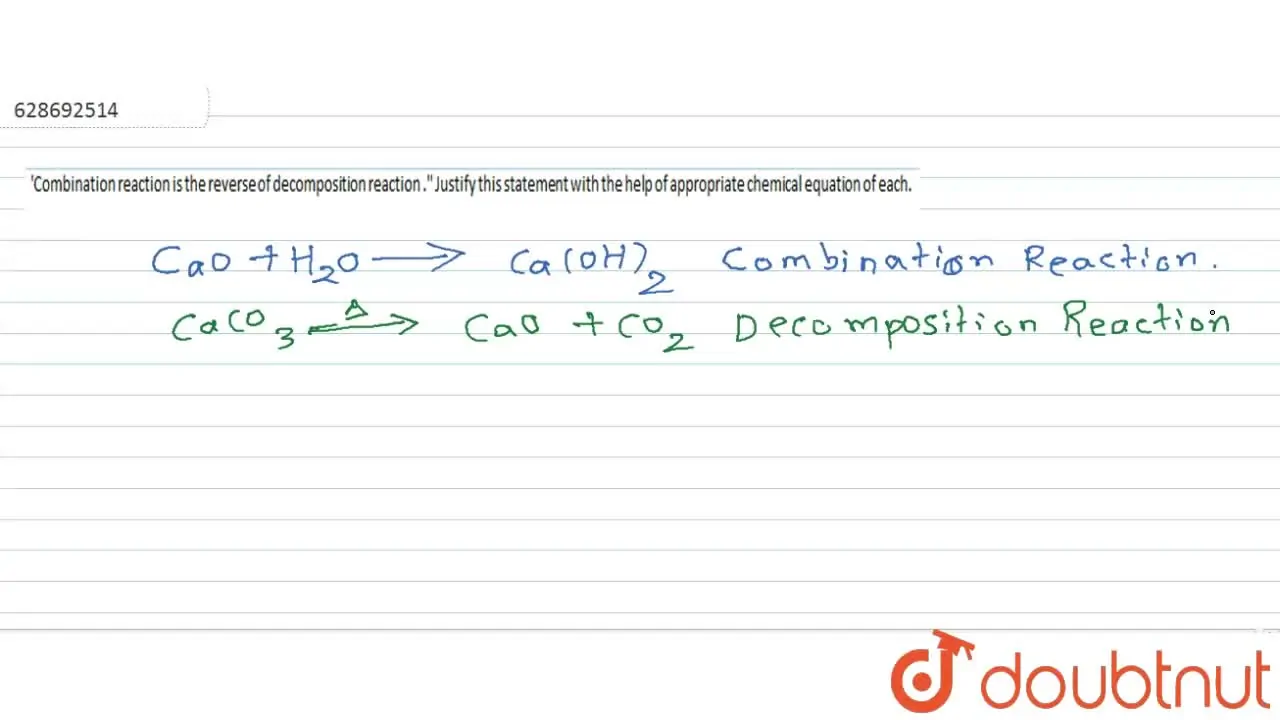 628692514
'Combination reaction is the reverse of decomposition reaction ." Justify this statement with the help of appropriate chemical equation of each.
CaO + H2O ⟶ Ca(OH)2 Combination Reaction.
CaCO3 ⟶ Δ CaO + CO2 Decomposition Reaction
doubtnut